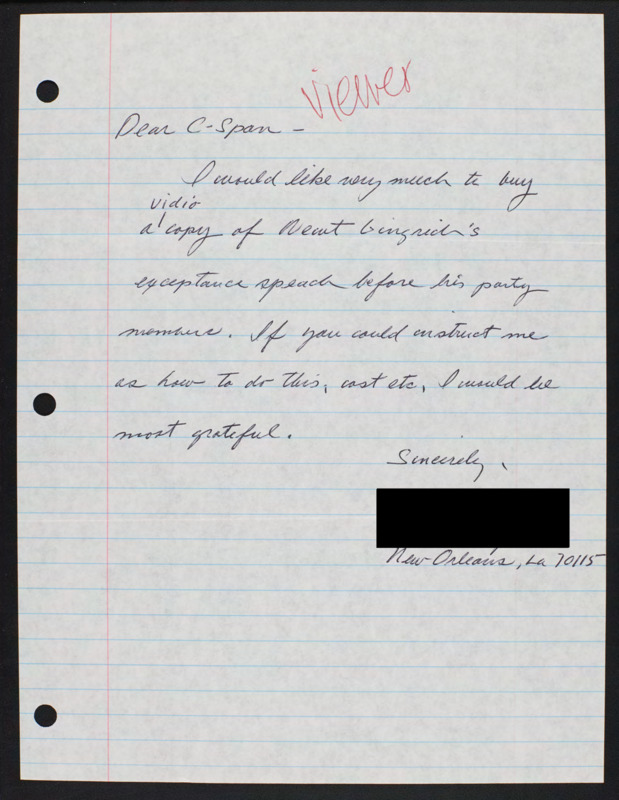 Viewer
Dear C-Span -
I would like very much to buy
vidio
a copy of Newt Gingrich's
exceptance speach before his party
members. If you could instruct me
as how to do this, cost etc, I would be
most grateful.
Sincerely,
New Orleans, La 70115